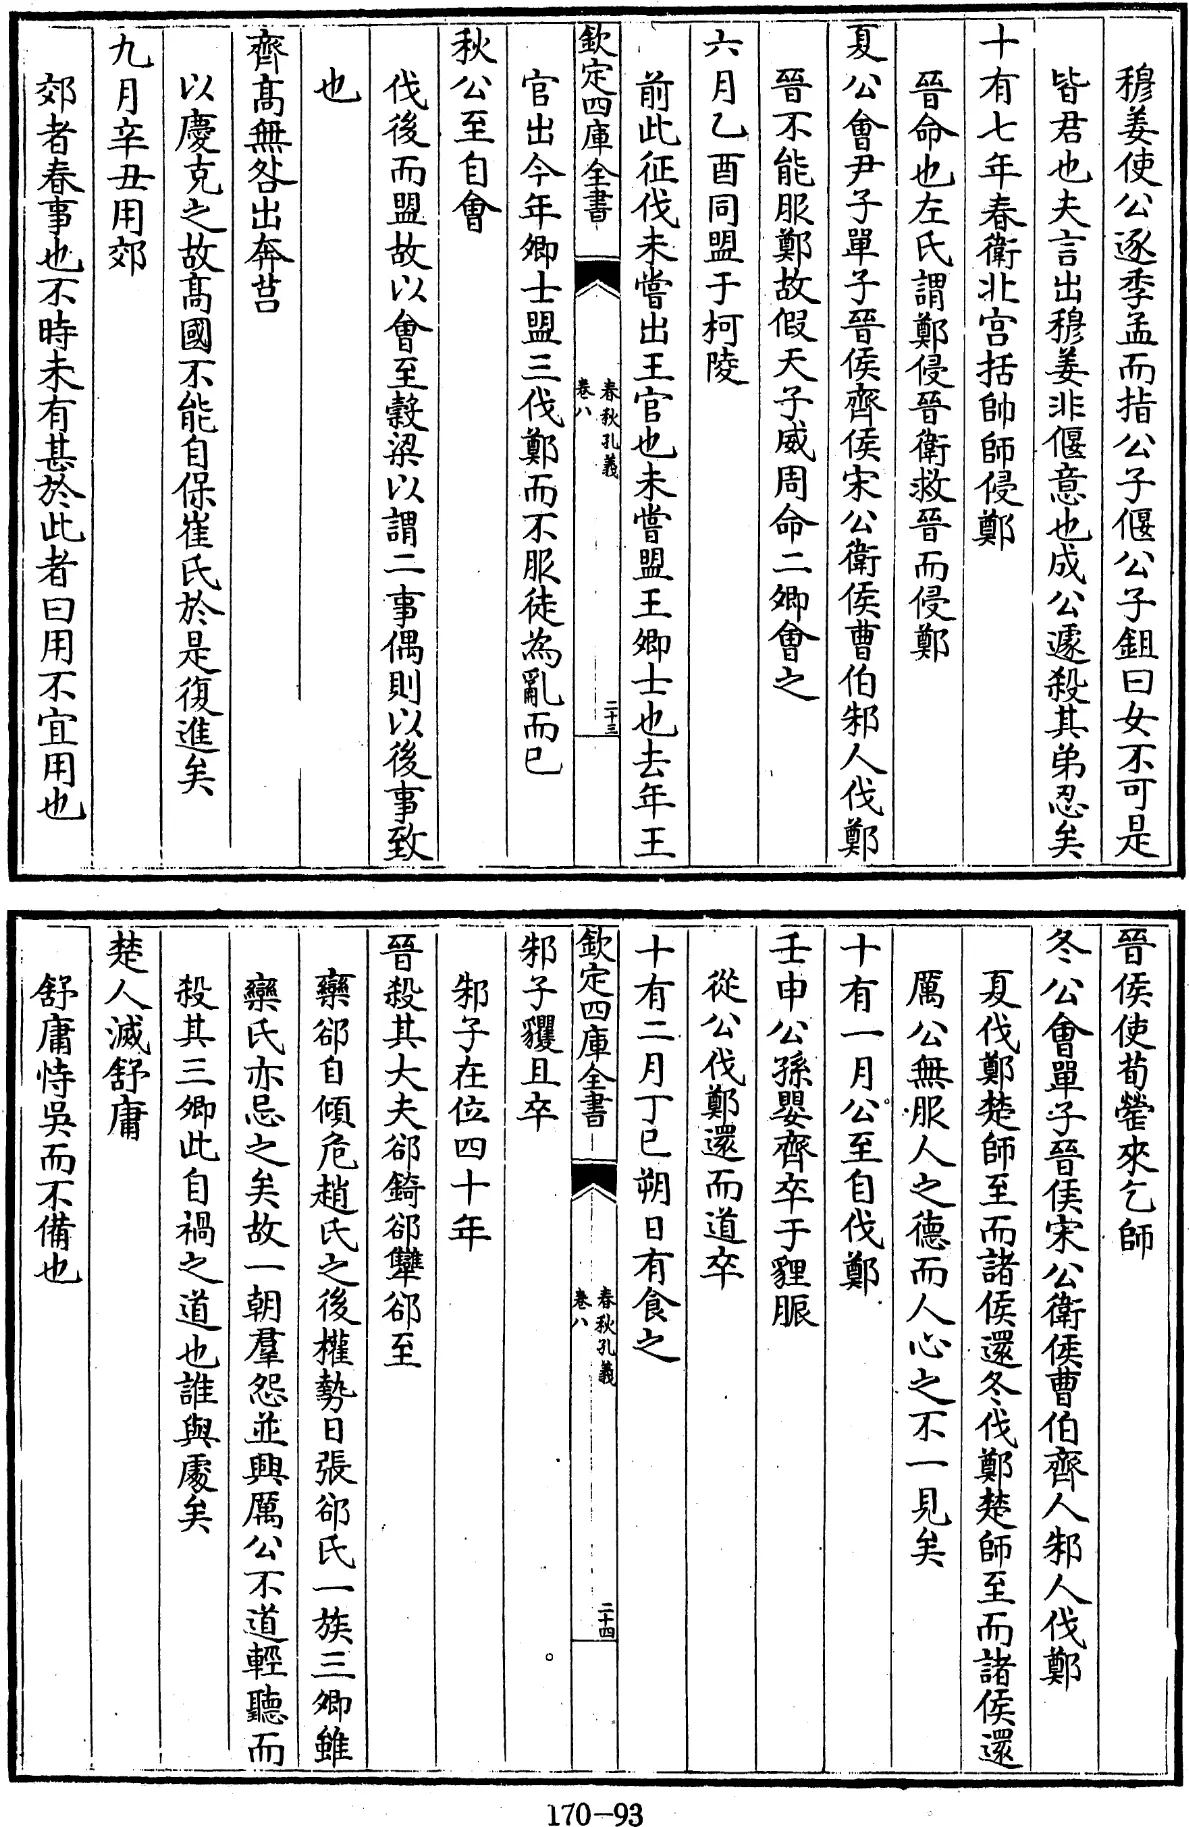 穆姜使公逐季孟而指公子偃公子鉏曰女不可是
皆君也夫言出穆姜非偃意也成公遽殺其弟忍矣
十有七年春衛北宫括帥師侵鄭
晉命也左氏謂鄭侵晉衛救晉而侵鄭
夏公會尹子單子晉侯齊侯宋公衛侯曹伯邾人伐鄭
晉不能服鄭故假天子威周命二卿會之
六月乙酉同盟于柯陵
前此征伐未嘗出王官也未嘗盟王卿士也去年王
欽定四庫全書
春秋孔義
卷八
二十三
官出今年卿士盟三伐鄭而不服徒為亂而已
秋公至自會
伐後而盟故以會至穀梁以謂二事偶則以後事致
也
齊髙無咎出奔莒
以慶克之故髙國不能自保崔氏於是復進矣
九月辛丑用郊
郊者春事也不時未有甚於此者曰用不宜用也
晉侯使荀罃來乞師
冬公會單子晉侯宋公衛侯曹伯齊人邾人伐鄭
夏伐鄭楚師至而諸侯還冬伐鄭楚師至而諸侯還
厲公無服人之德而人心之不一見矣
十有一月公至自伐鄭
壬申公孫嬰齊卒于貍脤
從公伐鄭還而道卒
十有二月丁巳朔日有食之
欽定四庫全書
春秋孔義
卷八
二十四
邾子貜且卒
邾子在位四十年
晉殺其大夫郤錡郤犫郤至
欒郤自傾危趙氏之後權勢日張郤氏一族三卿雖
欒氏亦忌之矣故一朝羣怨並興厲公不道輕聽而
殺其三卿此自禍之道也誰與處矣
楚人滅舒庸
舒庸恃吳而不備也
170-93